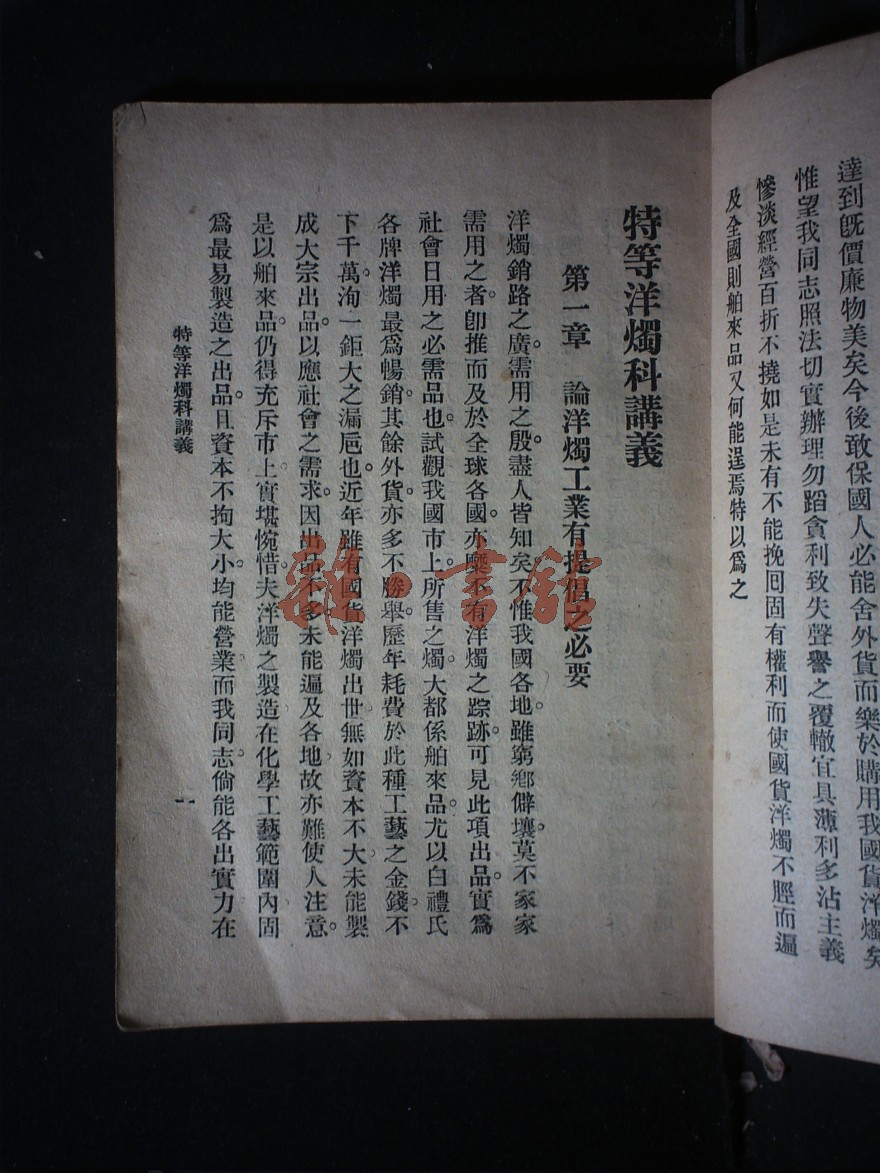 達到旣價廉物美矣今後敢保國人必能舍外貨而樂於購用我國貨洋燭矣
惟望我同志照法切實辦理勿蹈貪利致失聲譽之覆轍宜具薄利多沾主義
慘淡經營百折不撓如是未有不能挽回固有權利而使國貨洋燭不脛而遍
及全國則舶來品又何能逞焉特以爲之
特等洋燭科講義
第一章 論洋燭工業有提倡之必要
洋燭銷路之廣。需用之殷。盡人皆知矣。不惟我國各地。雖窮鄉僻壤。莫不家家
需用之者。卽推而及於全球各國。亦縻不有洋燭之踪跡。可見此項出品。實爲
社會日用之必需品也。試觀我國市上所售之燭。大都係舶來品。尤以白禮氏
各牌洋燭。最爲暢銷。其餘外貨。亦多不勝舉。歷年耗費於此種工藝之金錢。不
下千萬。洵一鉅大之漏巵也。近年雖有國貨洋燭出世。無如資本不大。未能製
成大宗出品。以應社會之需求。因出品不多。未能遍及各地。故亦難使人注意。
是以舶來品。仍得充斥市上。實堪惋惜。夫洋燭之製造。在化學工藝範圍內。固
爲最易製造之出品。且資本不拘大小。均能營業。而我同志。倘能各出實力。在
特等洋燭科講義
一
雜·書館